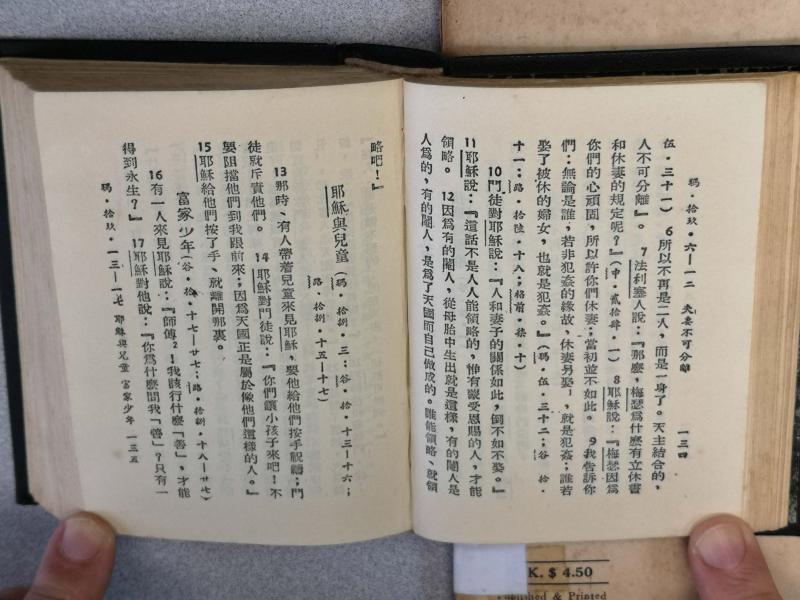 瑪・拾玖・六—一二　夫妻不可分離　一三四
伍・三十一) 6所以不再是二人，而是一身了。天主結合的，
人不可分離』。 7法利塞人說：『那麼，梅瑟爲什麼有立休書
和休妻的規定呢？』(申・貳拾肆・一) 8耶穌說：『梅瑟因爲
你們的心頑固，所以許你們休妻；當初並不如此。 9我告訴你
們：無論是誰，若非犯姦的緣故，休妻另娶1，就是犯姦；誰若
娶了被休的婦女，也就是犯姦。』(瑪・伍・三十二；谷・拾・
十一；路・拾陸・十八；格前・柒・十)
10門徒對耶穌說：『人和妻子的關係如此，倒不如不娶。』
11耶穌說：『這話不是人人能領略的，惟有蒙受恩賜的人，才能
領略。 12因爲有的閹人，從母胎中生出就是這樣，有的閹人是
人爲的，有的閹人，是爲了天國而自己做成的。誰能領略、就領
略吧！』
耶穌與兒童 (瑪・拾捌・三；谷・拾・十三—十六；
路・拾捌・十五—十七)
13那時、有人帶着兒童來見耶穌，要他給他們按手祝禱；門
徒就斥責他們。 14耶穌對門徒說：『你們讓小孩子來吧！不
要阻擋他們到我跟前來；因爲天國正是屬於像他們這樣的人。』
15耶穌給他們按了手、就離開那裏。
富家少年 (谷・拾・十七—廿七；路・拾捌・十八—廿七)
16有一人來見耶穌說：『師傅2！我該行什麼「善」，才能
得到永生？』 17耶穌對他說：『你爲什麼問我「善」？只有一
瑪・拾玖・一三—一七　耶穌與兒童　富家少年　一三五
K. $ 4.50
Published & Printed